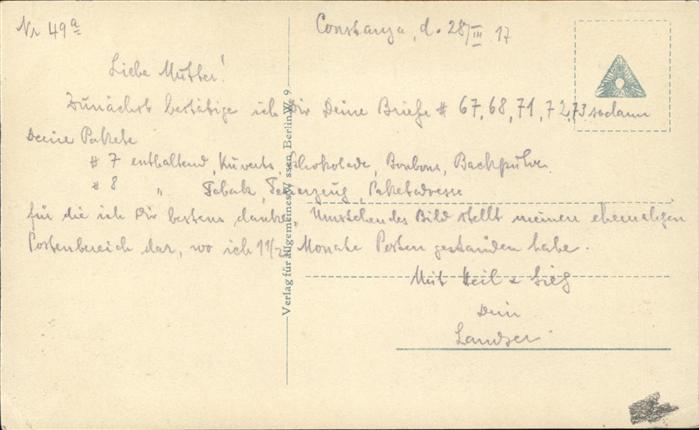 Nr 49a
Constanza, d. 28/III 17
Liebe Mutter!
Zunächst bestätige ich Dir Deine Briefe # 67, 68, 71, 72, 73 sodann
Deine Pakete
# 7 enthaltend, Kuverts, Schokolade, Bonbons, Backpulver
# 8 " Tabak, Feuerzeug, Paketadresse
für die ich Dir bestens danke. Umstehendes Bild stellt meinen ehemaligen
Postenbereich dar, wo ich 1 1/2 Monate Posten gestanden habe.
Mit Heil & Sieg
Dein
Verlag für allgemeines Wissen, Berlin W. 9